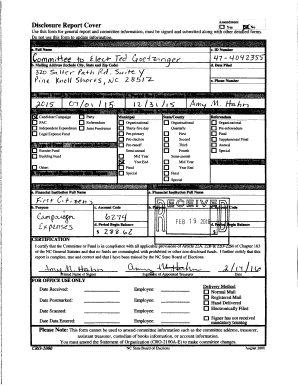 Disclosure Report Cover
Amendment
Yes No
Use this form for general report and committee information, must be signed and submitted along with other detailed forms.
Do not use this form to update information.
a. Full Name
c. ID Number
Committee to Elect Ted Goetzinger
47-4042355
b. Mailing Address Include City, State and Zip Code)
d. Date Filed
320 Salter Path Rd. Suite Y
Pine Knoll Shores, NC 28512
e. Phone Number
2015 07/01/15 12/31/15 Amy M. Hahn
Candidate Campaign
Municipal
State/County
Referendum
PAC
Referendum
Organizational
Organizational
Organizational
Independent Expenditure
Joint Fundraiser
Thirty-five day
Quarterly
Pre-referendum
Legal Expense Fund
Pre-primary
First
Final
Pre-election
Second
Supplemental
Pre-runoff
Third
Annual
Semi-annual
Fourth
Special
Mid Year
Semi-annual
Year End
Mid Year
Final
Year End
Special
Final
Special
Building Fund
Other:
a. Financial Institution Full Name
a. Financial Institution Full Name
First Citizens
RECEIVED
FEB 19 2016
b. Purpose
c. Account Code
b. Purpose
Campaign
Expenses
6274
d. Period Begin Balance
$ 288.62
CERTIFICATION
I certify that the Committee or Fund is in compliance with all applicable provisions of Article 22A, 22B & 22D-22M of Chapter 163
of the NC General Statutes and that no funds are commingled with prohibited or other non-disclosed funds. I further certify that this
report is complete, true and correct and that I have been trained by the NC State Board of Elections.
Amy M. Hahn
Amy M Hahn
2/17/16
Printed Name of Signer
Signature of Appointed Treasurer
Date
FOR OFFICE USE ONLY
Date Received:
Employee:
Delivery Method
Normal Mail
Registered Mail
Date Postmarked:
Employee:
Hand Delivered
Electronically Filed
Date Scanned:
Employee:
Signer has not received
mandatory training
Date Data Entered:
Employee:
Please Note: This form cannot be used to amend committee information such as the committee address, treasurer,
assistant treasurer, custodian of books information, or account information.
You must amend the Statement of Organization (CRO-2100A-E) to make committee changes.
CRO-1000
NC State Board of Elections
August 2008